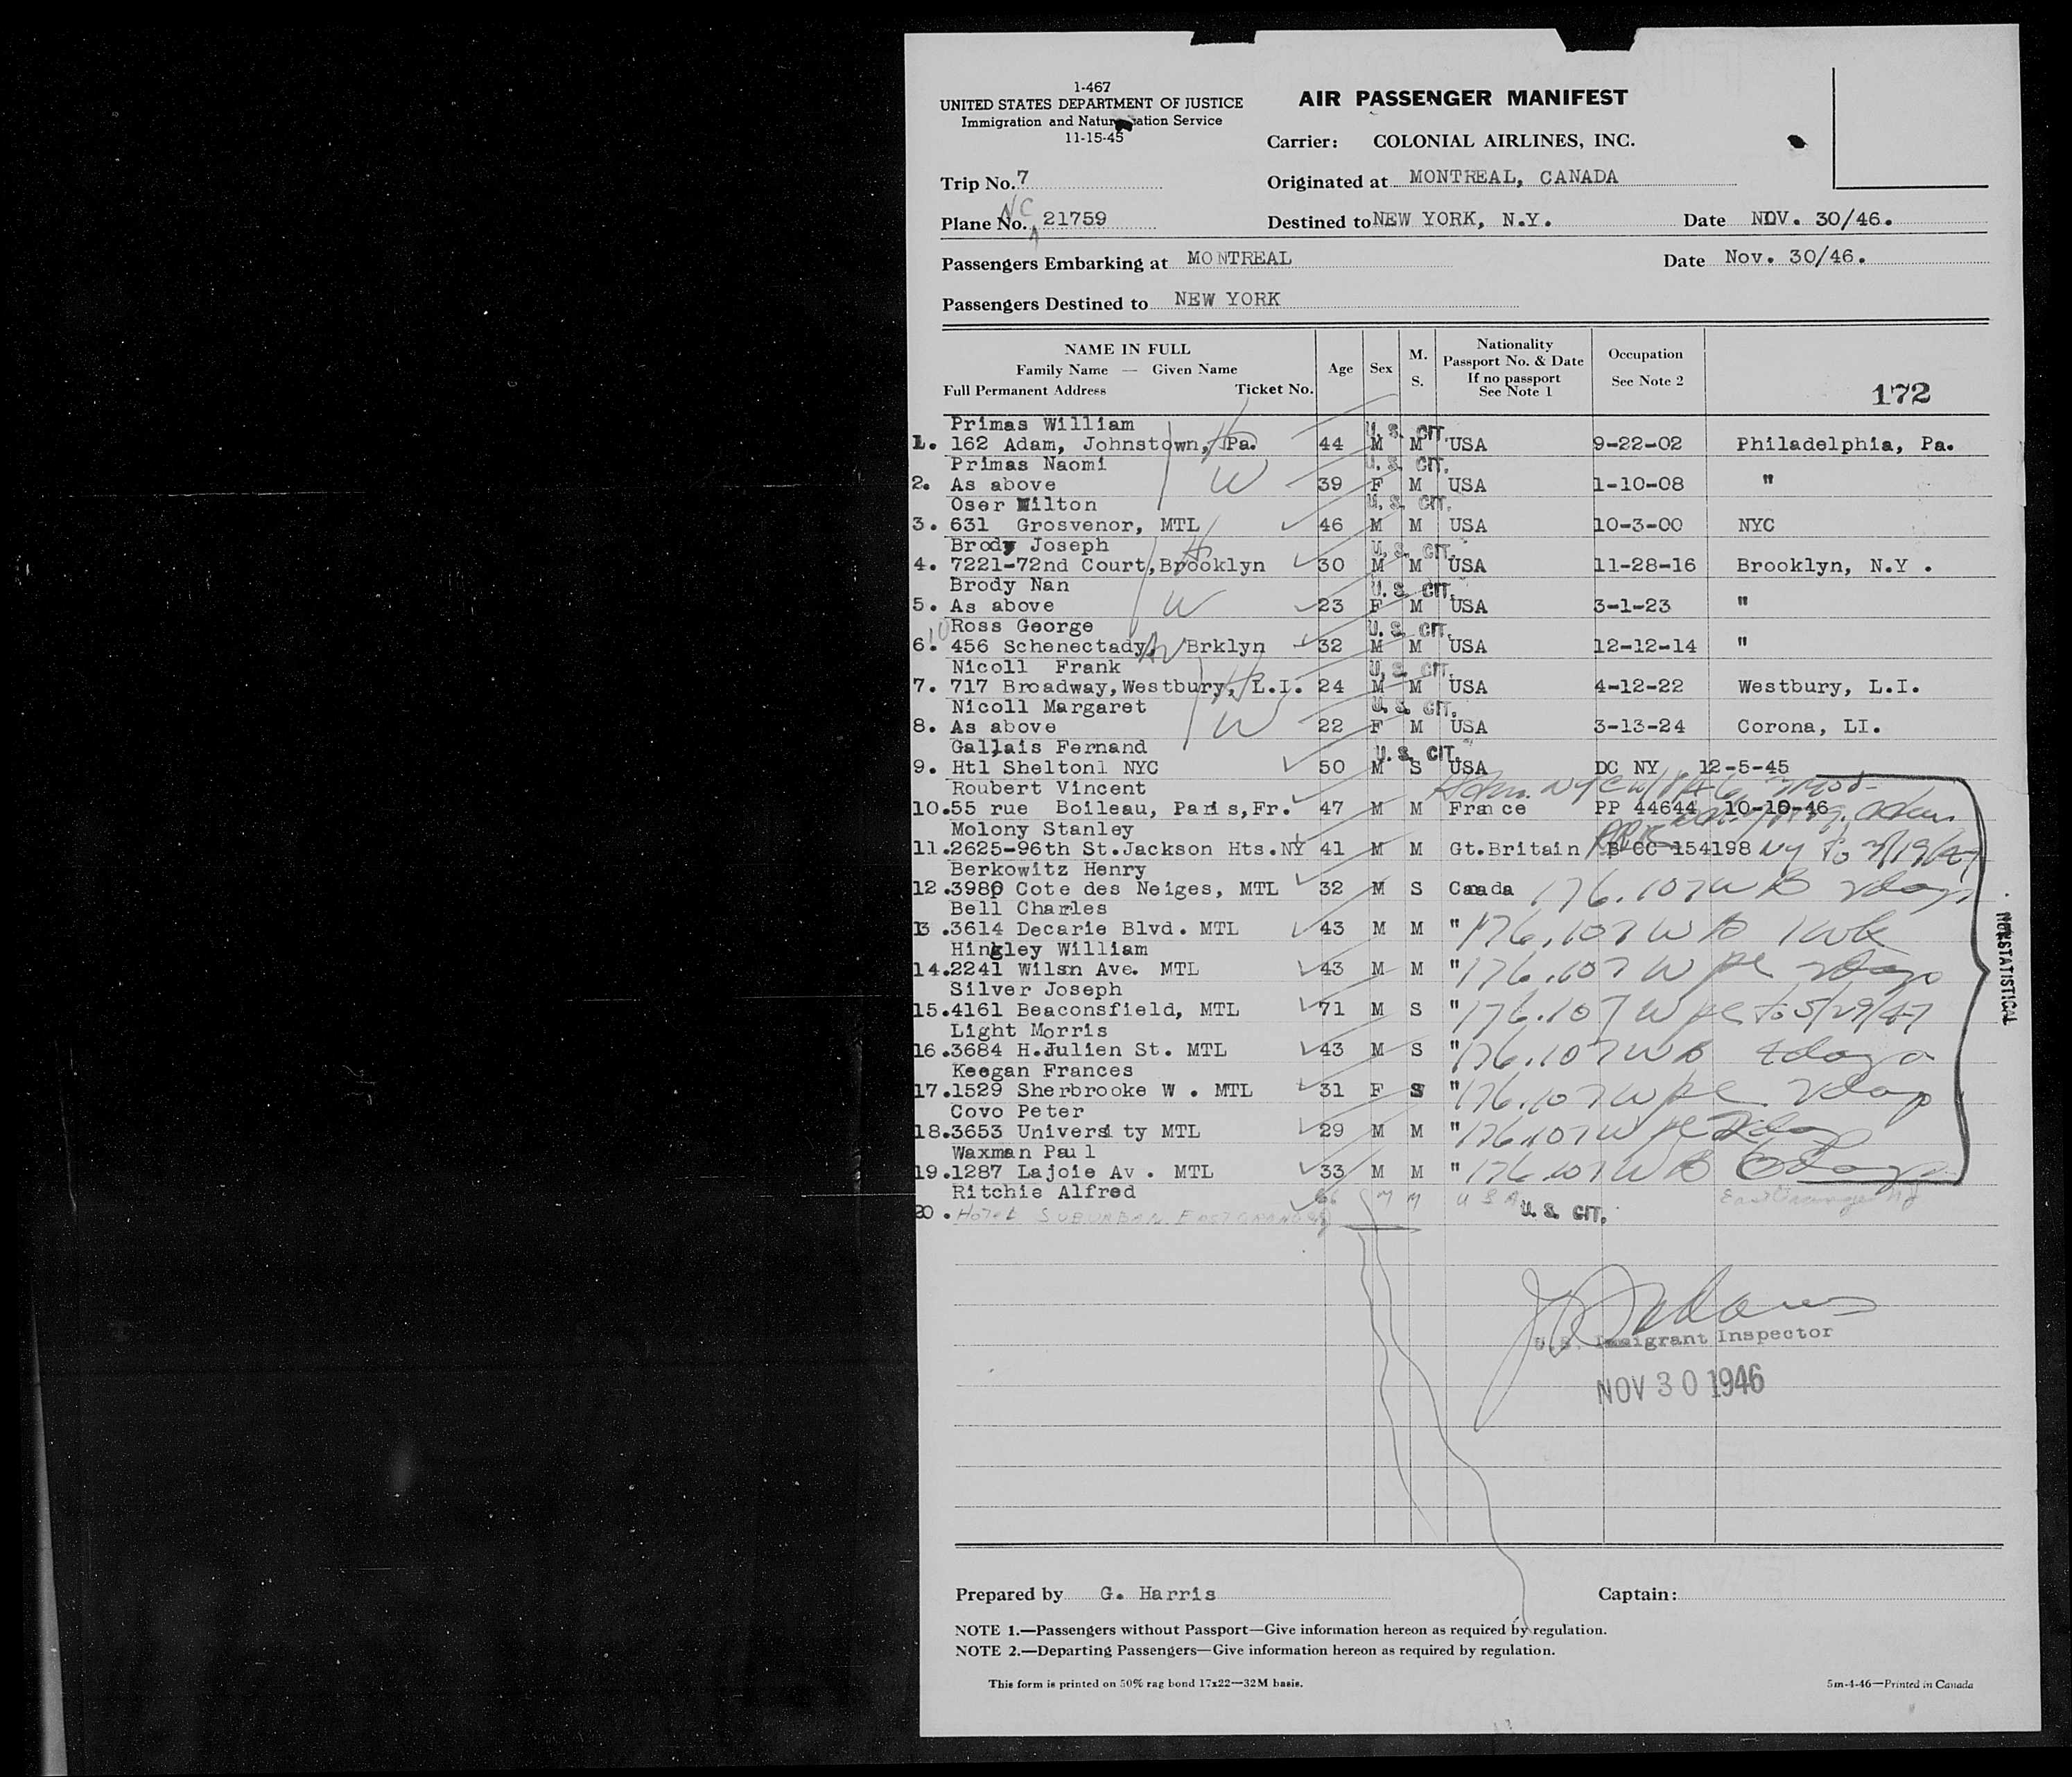 1-467
UNITED STATES DEPARTMENT OF JUSTICE
Immigration and Naturalization Service
11-15-45
AIR PASSENGER MANIFEST
Carrier: COLONIAL AIRLINES, INC.
Trip No. 7
Originated at MONTREAL, CANADA
Plane No. NC 21759
Destined to NEW YORK, N.Y. Date NOV. 30/46.
Passengers Embarking at MONTREAL Date Nov. 30/46.
Passengers Destined to NEW YORK
NAME IN FULL
Family Name — Given Name
Full Permanent Address Ticket No.
Age
Sex
M.
S.
Nationality
Passport No. & Date
If no passport
See Note 1
Occupation
See Note 2
172
Primas William U. S. CIT.
1. 162 Adam, Johnstown, Pa. H 44 M M USA 9-22-02 Philadelphia, Pa.
Primas Naomi U. S. CIT.
2. As above W 39 F M USA 1-10-08 "
Oser Milton U. S. CIT.
3. 631 Grosvenor, MTL 46 M M USA 10-3-00 NYC
Brody Joseph U. S. CIT.
4. 7221-72nd Court, Brooklyn H 30 M M USA 11-28-16 Brooklyn, N.Y .
Brody Nan U. S. CIT.
5. As above W 23 F M USA 3-1-23 "
Ross George U. S. CIT.
6. 456 Schenectady, Av Brklyn 32 M M USA 12-12-14 "
Nicoll Frank U. S. CIT.
7. 717 Broadway, Westbury, L.I. H 24 M M USA 4-12-22 Westbury, L.I.
Nicoll Margaret U. S. CIT.
8. As above W 22 F M USA 3-13-24 Corona, LI.
Gallais Fernand U. S. CIT.
9. Htl Sheltonl NYC 50 M S USA DC NY 12-5-45
Roubert Vincent
10. 55 rue Boileau, Paris, Fr. 47 M M France PP 44644 10-10-46
Molony Stanley
11. 2625-96th St. Jackson Hts. NY 41 M M Gt. Britain B CC 154198 NY to 3/19/47
Berkowitz Henry
12. 3980 Cote des Neiges, MTL 32 M S Canada 176.107 W B
Bell Charles
13. 3614 Decarie Blvd. MTL 43 M M " 176.107 W B 1 wk
Hingley William
14. 2241 Wilsn Ave. MTL 43 M M " 176.107 W pl
Silver Joseph
15. 4161 Beaconsfield, MTL 71 M S " 176.107 W pl to 5/29/47
Light Morris
16. 3684 H. Julien St. MTL 43 M S " 176.107 W B
Keegan Frances
17. 1529 Sherbrooke W . MTL 31 F S " 176.107 W pl
Covo Peter
18. 3653 University MTL 29 M M " 176.107 W pl
Waxman Paul
19. 1287 Lajoie Av . MTL 33 M M " 176.107 W B
Ritchie Alfred M M USA East Orange NJ
20. HOTEL SUBURBAN EAST ORANGE U. S. CIT.
NONSTATISTICAL
U.S. Immigrant Inspector
NOV 30 1946
Prepared by G. Harris Captain:
NOTE 1.—Passengers without Passport—Give information hereon as required by regulation.
NOTE 2.—Departing Passengers—Give information hereon as required by regulation.
This form is printed on 50% rag bond 17x22—32M basis. 5m-4-46—Printed in Canada